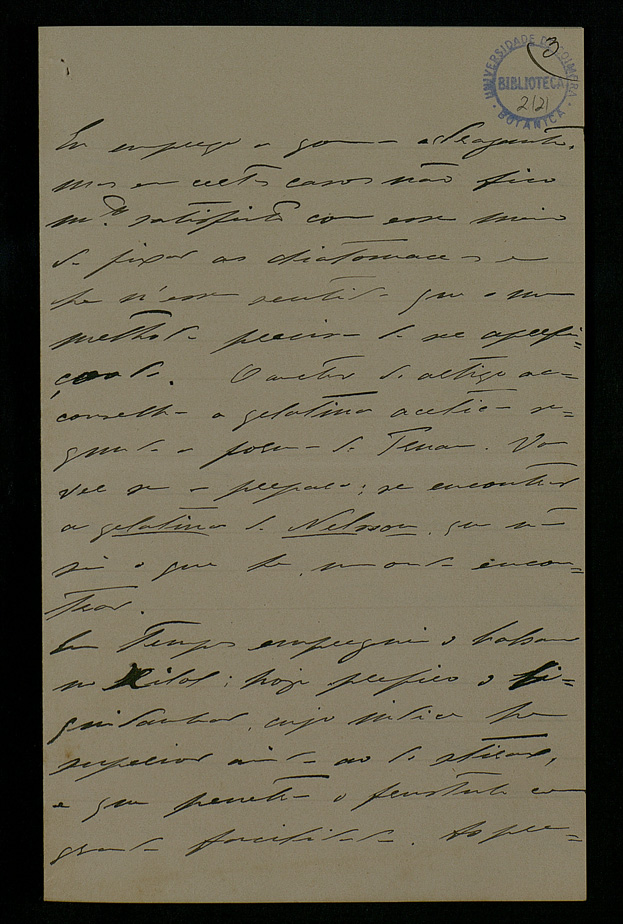 3
UNIVERSIDADE DE COIMBRA
BIBLIOTECA
BOTANICA
Eu emprego a goma adragante,
mas em certos casos não fico
m.to satisfeito com esse meio
de fixar as diatomaceas e
he n'esse sentido que o meu
methodo precisa de ser aperfei=
çoado. O auctor do artigo ac=
conselha a gelatina acetica se=
gundo a formula de
ver se a preparo; se encontrar
a gelatina de Nelson, que não
sei o que he, nem onde encon=
trar.
Em Tempo empreguei o balsamo
no Xilol; hoje prefiro o li=
quidambar, cujo indice he
superior ainda ao do styrax,
e que penetra o frustulo com
grande facilidade. As pre=